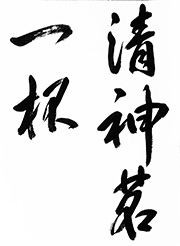 清神茗
一杯